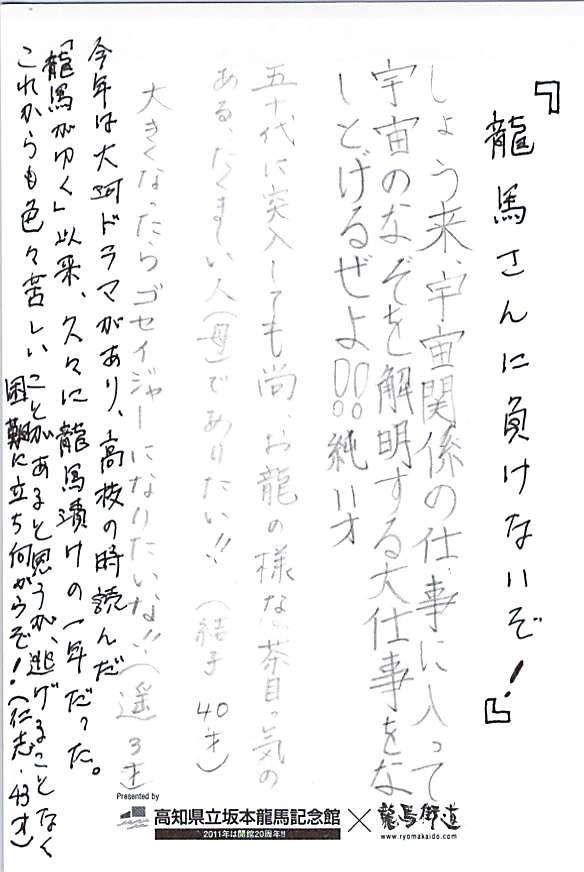 『龍馬さんに負けないぞ!』
しょう来、宇宙関係の仕事に入って
宇宙のなぞを解明する大仕事をな
しとげるぜよ!!純11才
五十代に突入しても尚、お龍の様な茶目っ気の
ある、たくましい人(母)でありたい!!(結子 40才)
大きくなったらゴセイジャーになりたいな!!(遥 3才)
今年は大河ドラマがあり、高校の時読んだ
「龍馬がゆく」以来、久々に龍馬漬けの一年だった。
これからも色々苦しいことがあると思うが、逃げることなく
困難に立ち向かうぞ!(仁志・43才)
Presented by
高知県立坂本龍馬記念館×龍馬街道
2011年は開館20周年!!
www.ryomakaido.com